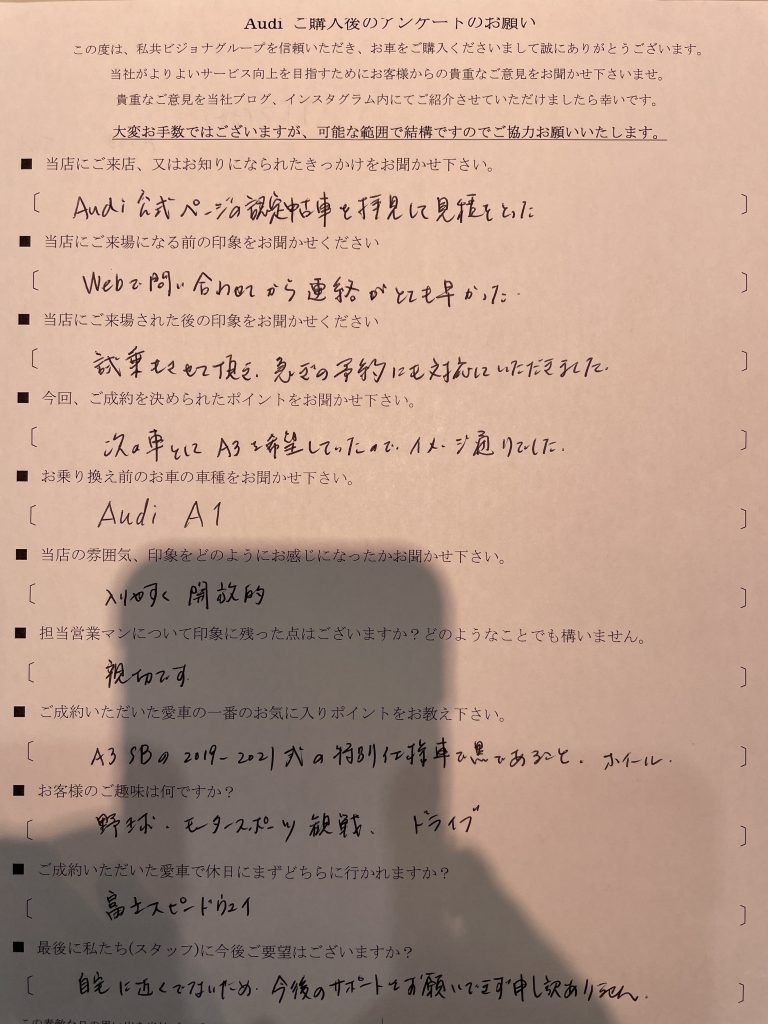 Audi ご購入後のアンケートのお願い
この度は、私共ビジョナグループを信頼いただき、お車をご購入くださいまして誠にありがとうございます。
当社がよりよいサービス向上を目指すためにお客様からの貴重なご意見をお聞かせ下さいませ。
貴重なご意見を当社ブログ、インスタグラム内にてご紹介させていただけましたら幸いです。
大変お手数ではございますが、可能な範囲で結構ですのでご協力お願いいたします。
■ 当店にご来店、又はお知りになられたきっかけをお聞かせ下さい。
〔 Audi 公式ページの認定中古車を拝見して見積をとった 〕
■ 当店にご来場になる前の印象をお聞かせください
〔 Webで問い合わせてから連絡がとても早かった. 〕
■ 当店にご来場された後の印象をお聞かせください
〔 試乗もさせて頂き、急ぎの予約にも対応していただきました. 〕
■ 今回、ご成約を決められたポイントをお聞かせ下さい。
〔 次の車として A3を希望していたので、イメージ通りでした. 〕
■ お乗り換え前のお車の車種をお聞かせ下さい。
〔 Audi A1 〕
■ 当店の雰囲気、印象をどのようにお感じになったかお聞かせ下さい。
〔 入りやすく 開放的 〕
■ 担当営業マンについて印象に残った点はございますか？どのようなことでも構いません。
〔 親切です 〕
■ ご成約いただいた愛車の一番のお気に入りポイントをお教え下さい。
〔 A3 SBの 2019-2021式の特別仕様車で黒であること、ホイール. 〕
■ お客様のご趣味は何ですか？
〔 野球・モータースポーツ観戦、ドライブ 〕
■ ご成約いただいた愛車で休日にまずどちらに行かれますか？
〔 富士スピードウェイ 〕
■ 最後に私たち(スタッフ)に今後ご要望はございますか？
〔 自宅に近くでないため、今後のサポートをお願いできず申し訳ありません. 〕